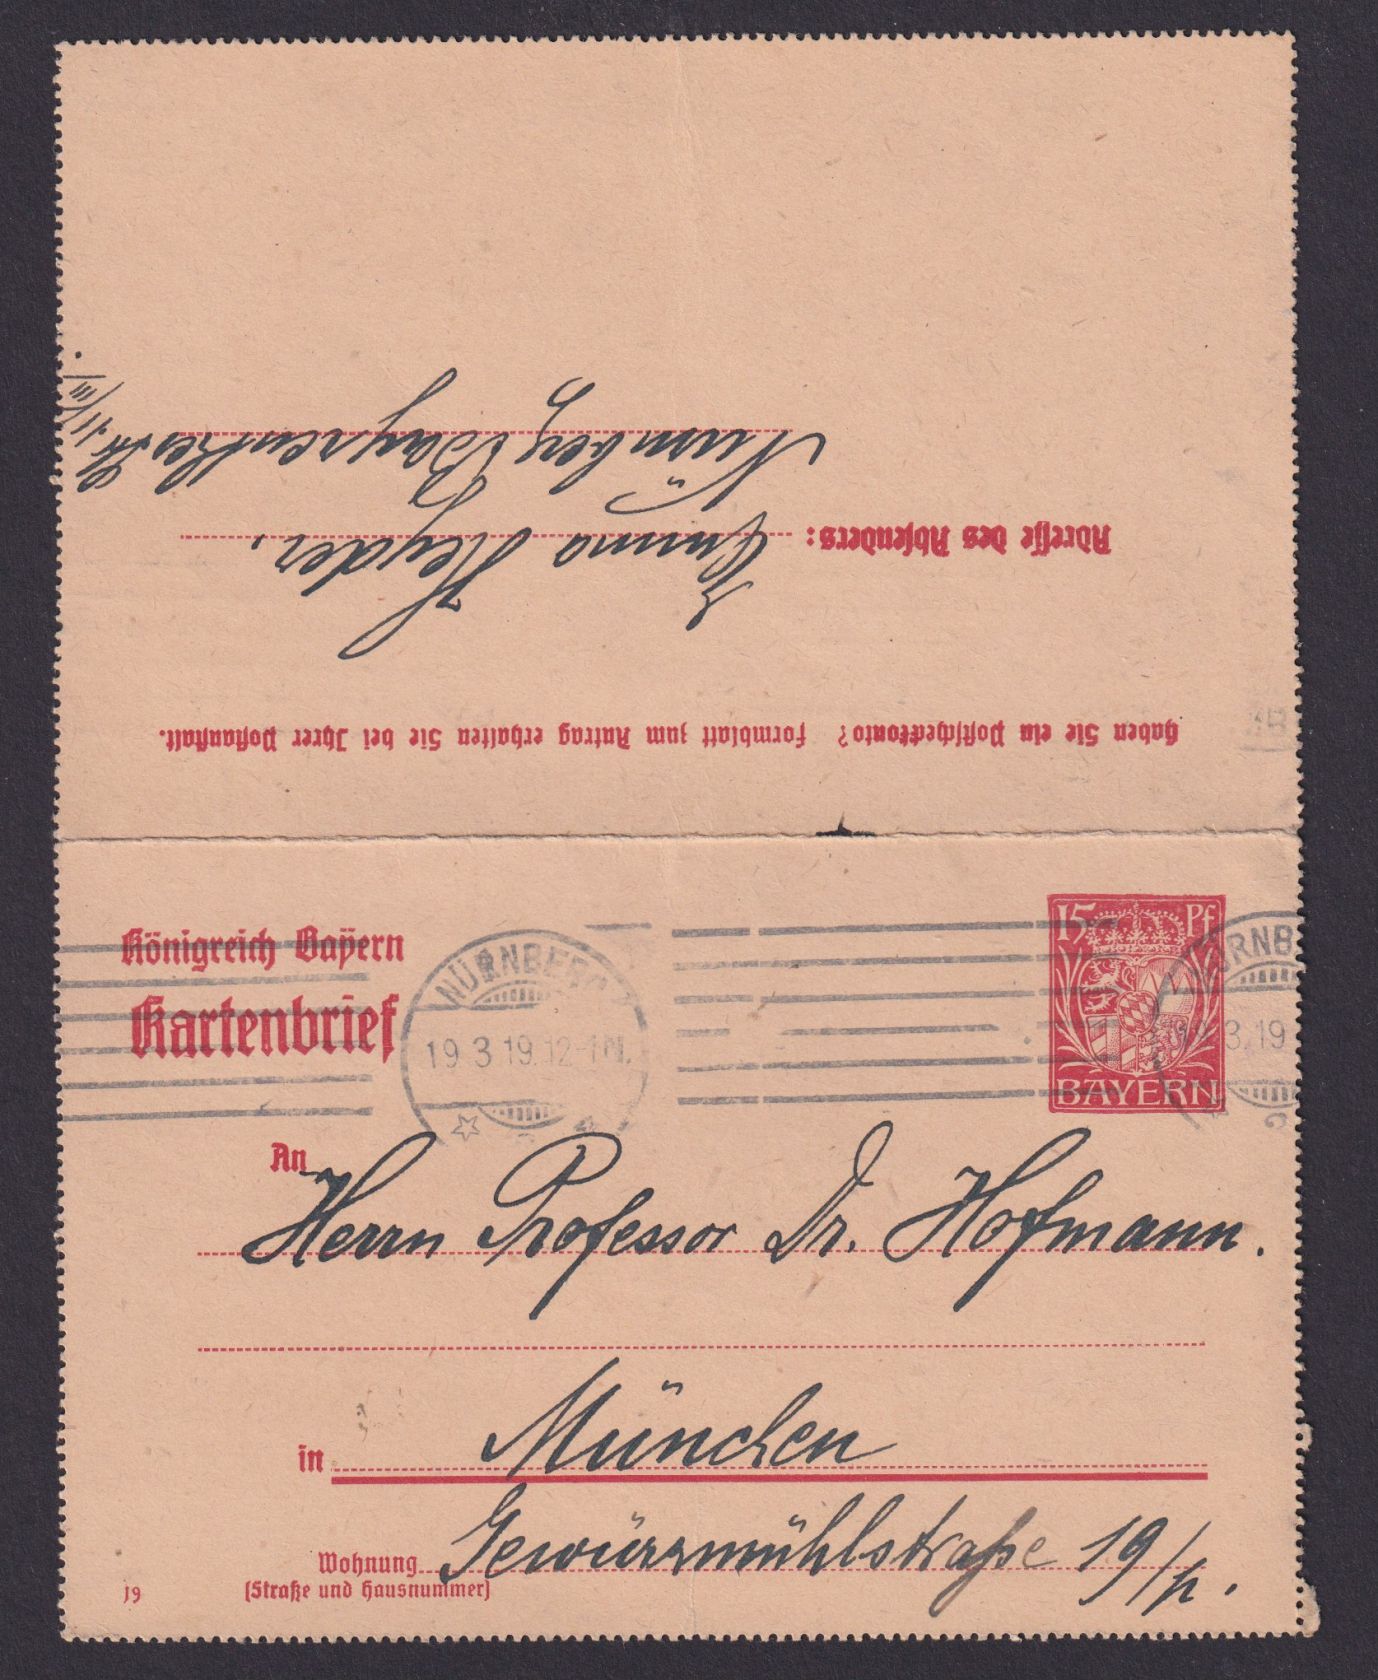 Haben Sie ein Postscheckkonto? Formblatt zum Antrag erhalten Sie bei Ihrer Postanstalt.
Adresse des Absenders: Emma Heyder,
Nürnberg Bayreutherstr. 11/III.
15 Pf
BAYERN
Königreich Bayern
Kartenbrief
NÜRNBERG 2
19.3.19.12-1N.
NÜRNB
19.3.19
An
Herrn Professor Dr. Hofmann.
in München
Wohnung Gewürzmühlstraße 19/p.
(Straße und Hausnummer)
19